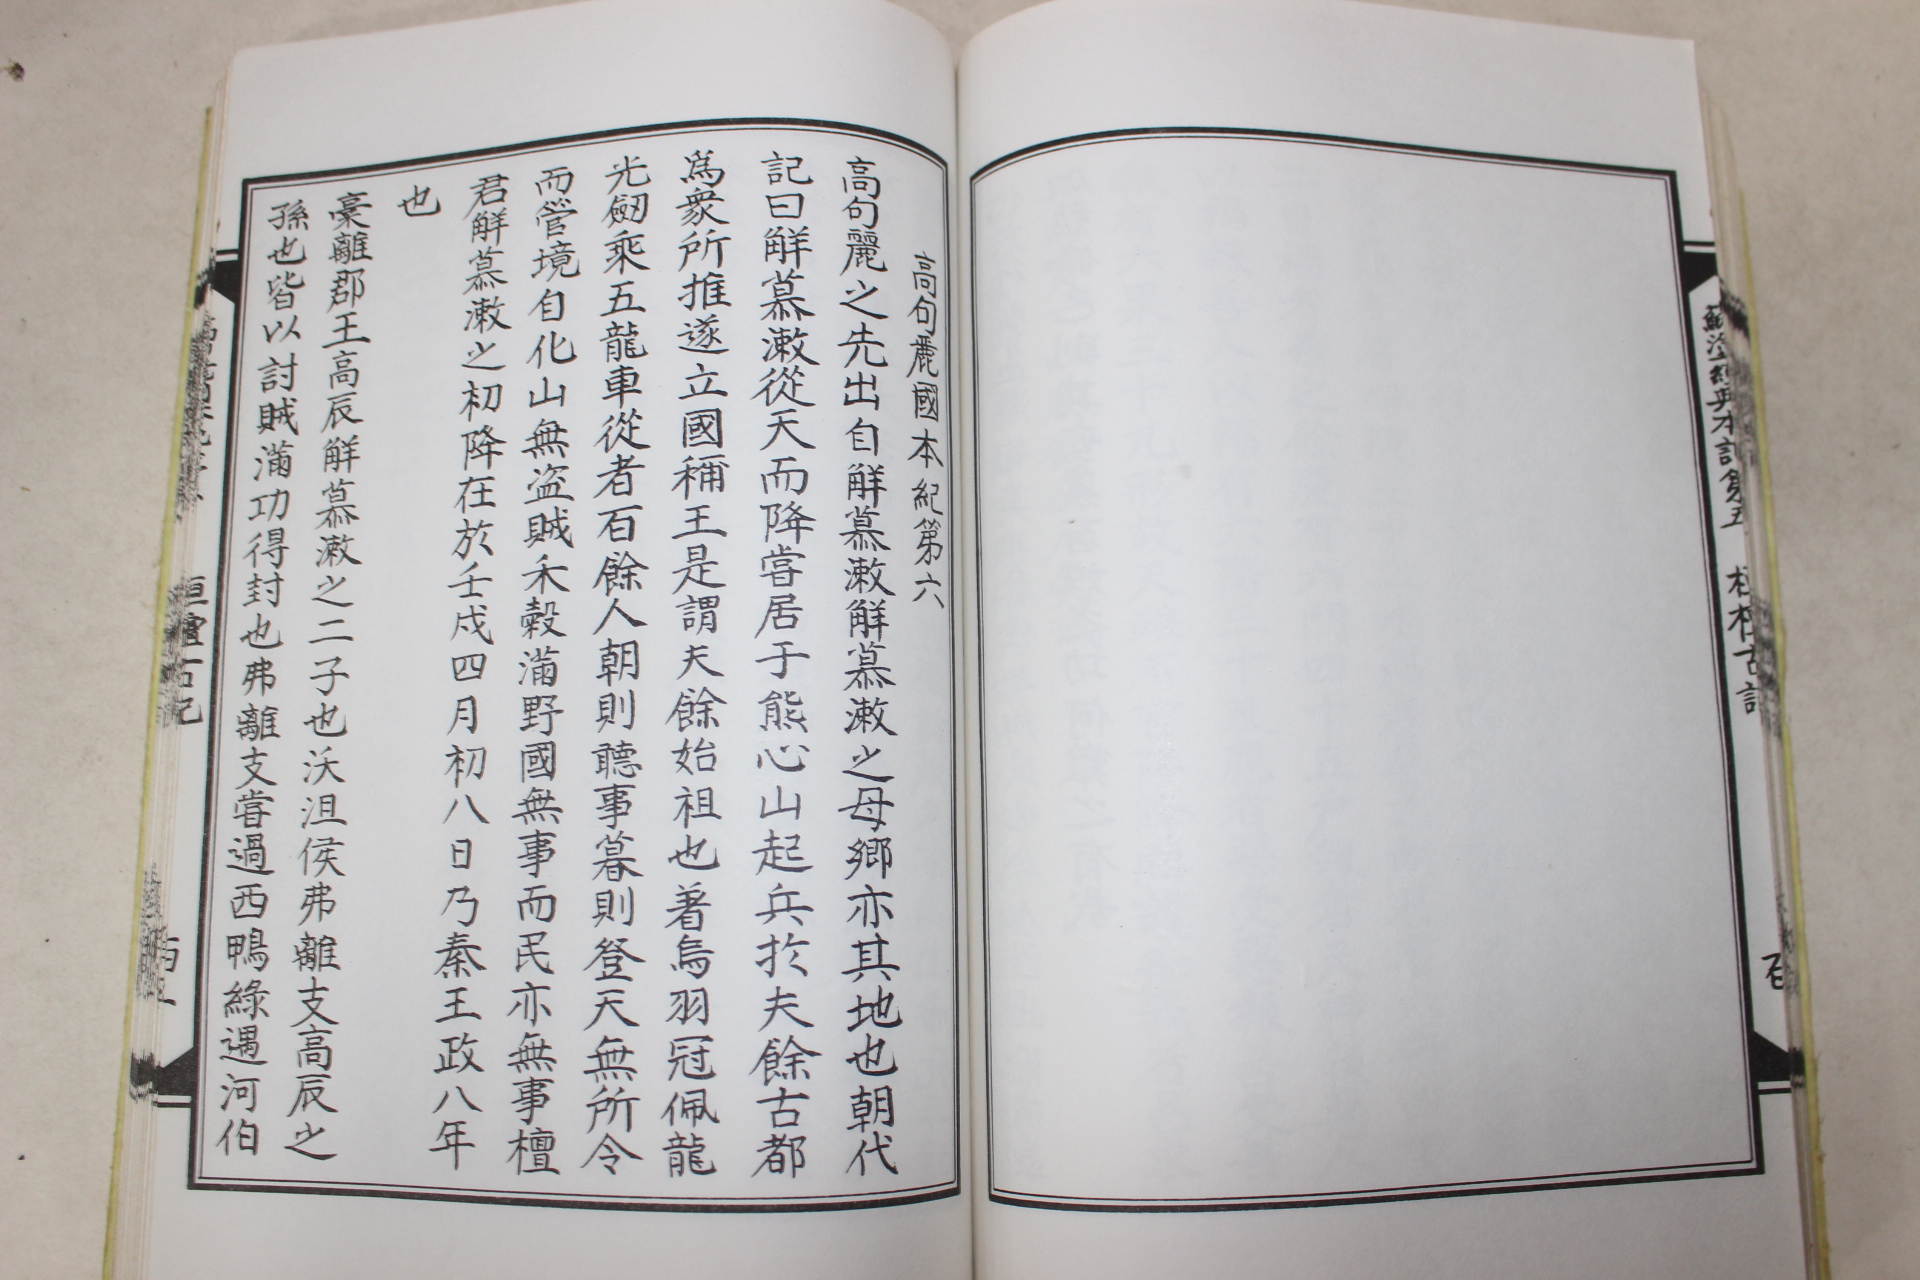 高句麗國本紀第六
高句麗之先出自解慕漱解慕漱之母鄉亦其地也朝代
記曰解慕漱從天而降嘗居于熊心山起兵於夫餘古都
爲衆所推遂立國稱王是謂夫餘始祖也着烏羽冠佩龍
光劒乘五龍車從者百餘人朝則聽事暮則登天無所令
而管境自化山無盜賊禾穀滿野國無事而民亦無事檀
君解慕漱之初降在於壬戌四月初八日乃秦王政八年
也
槀離郡王高辰解慕漱之二子也沃沮侯弗離支高辰之
孫也皆以討賊滿功得封也弗離支嘗過西鴨綠遇河伯
桓檀古記